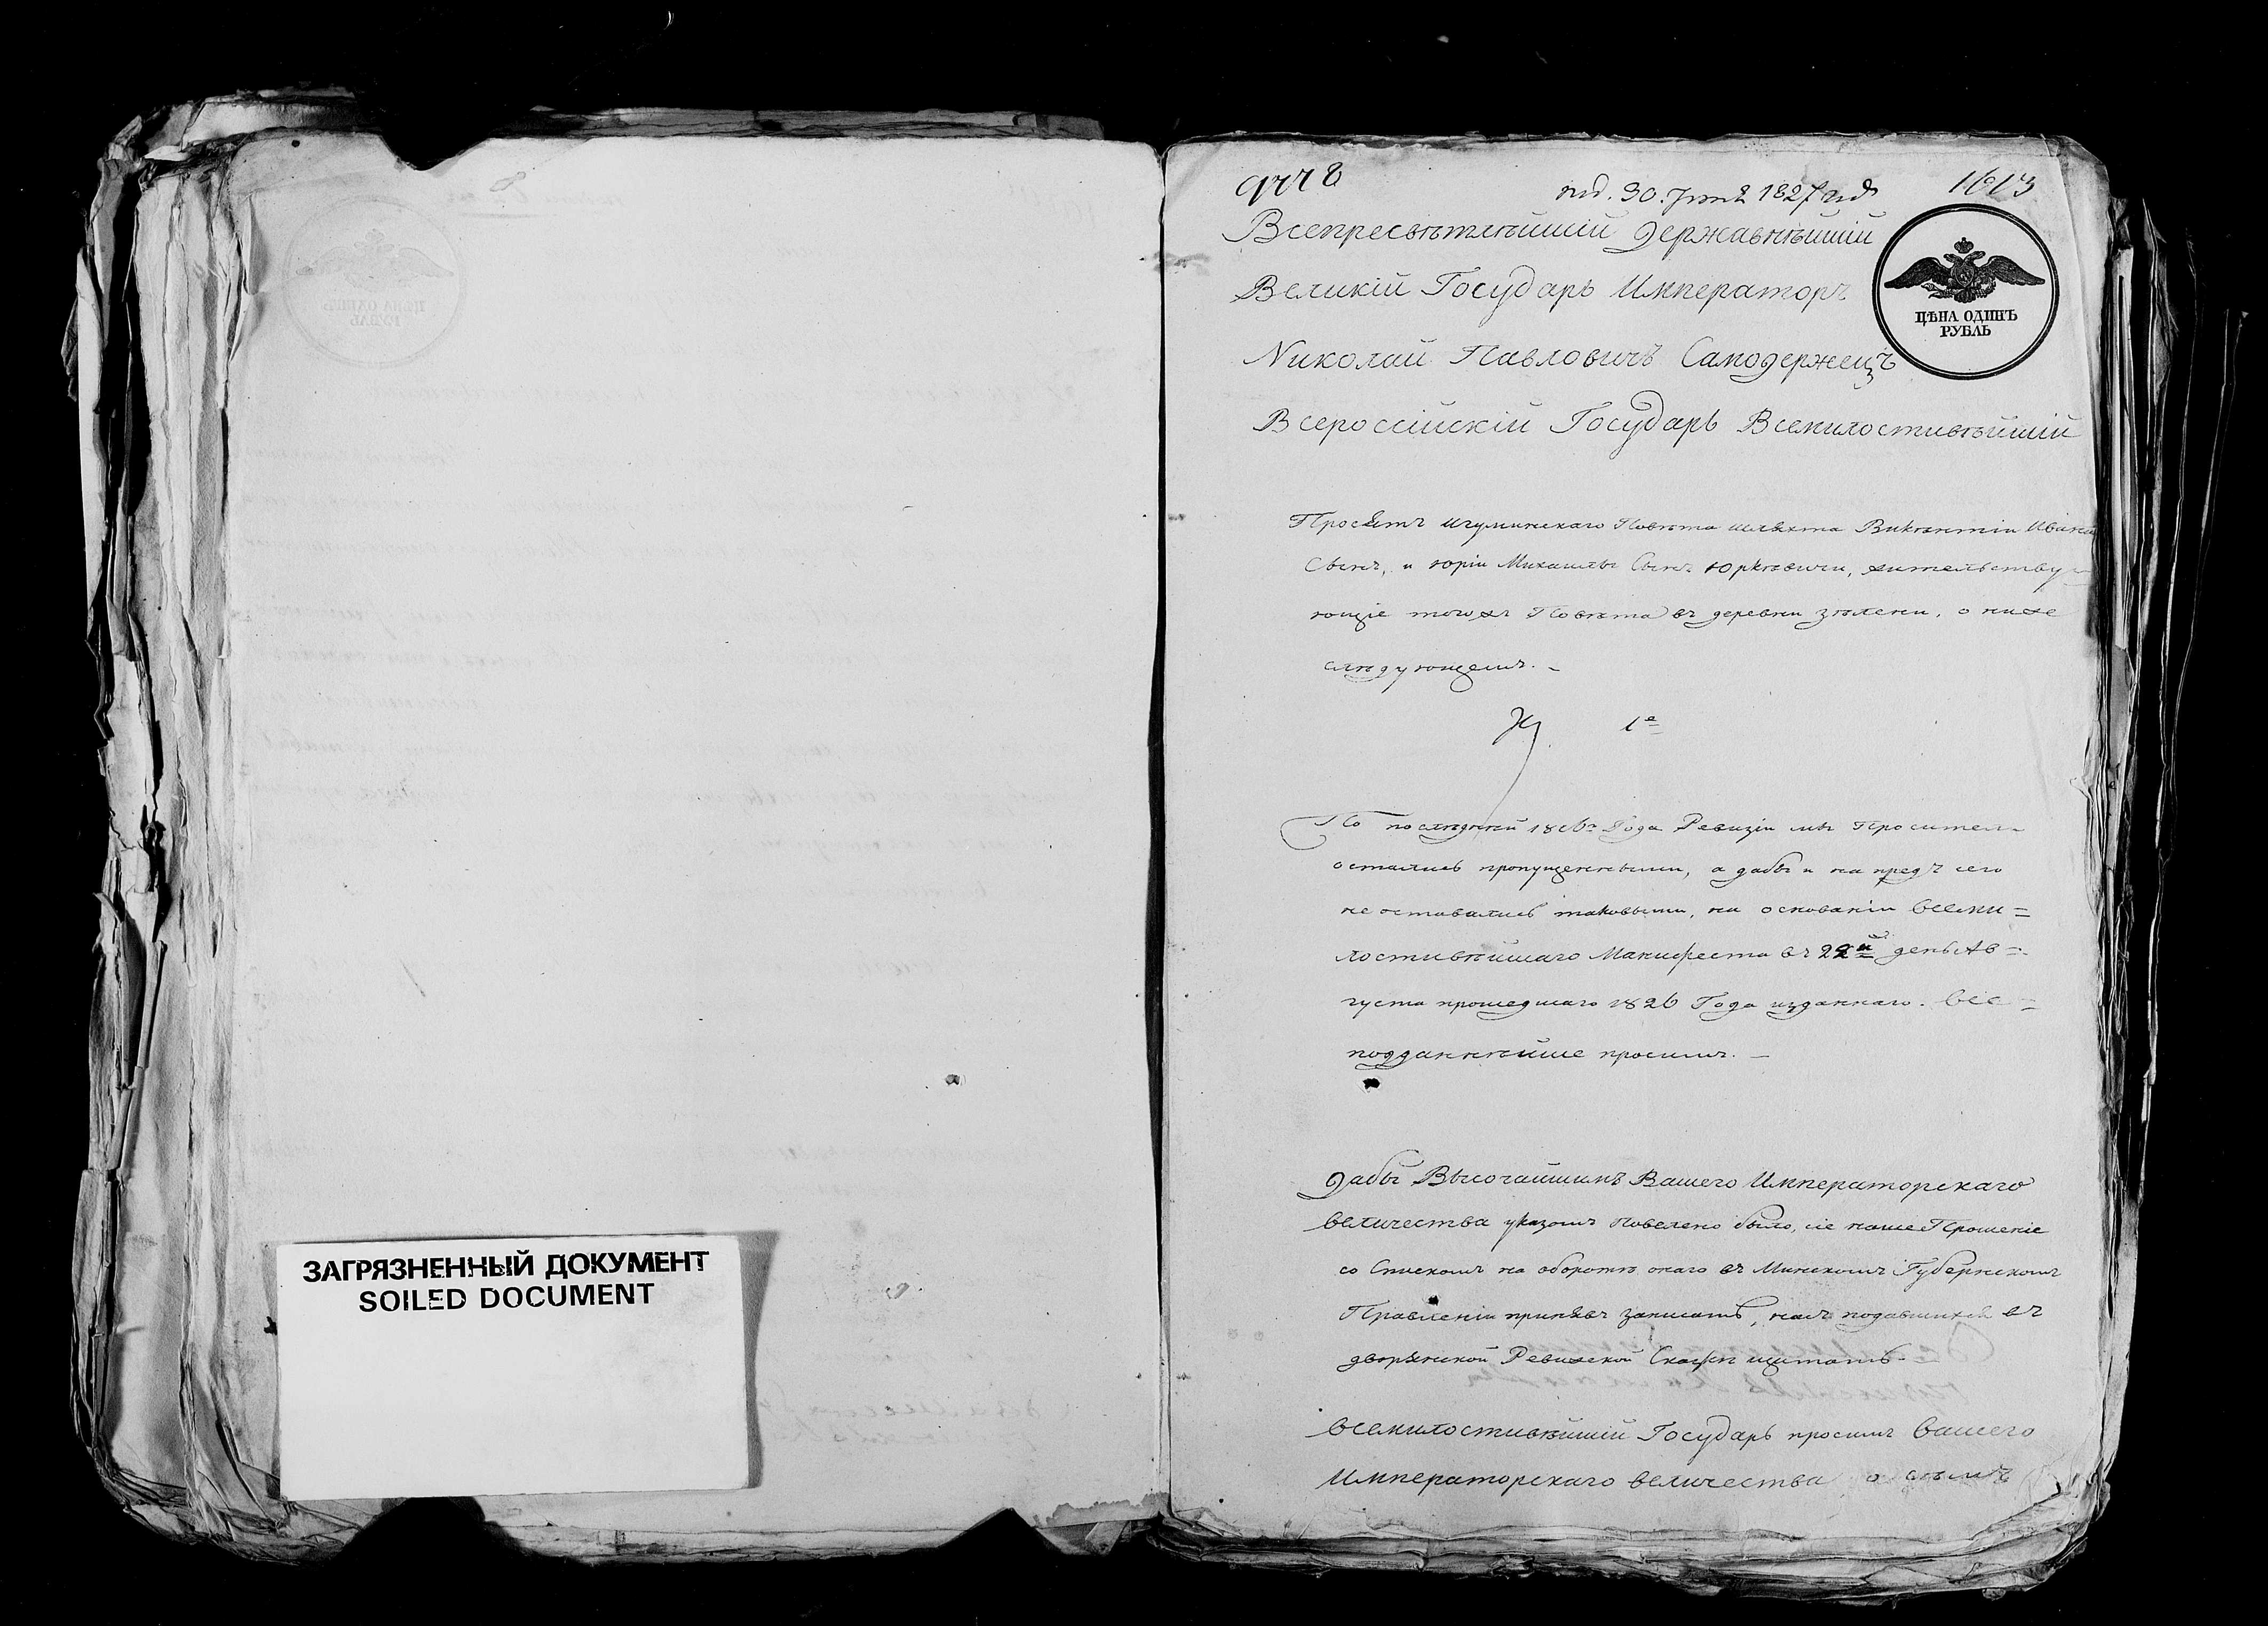 ЗАГРЯЗНЕННЫЙ ДОКУМЕНТ
SOILED DOCUMENT
1827
Всепресвѣтлѣйшій Державнѣйшій
Великій Государь Императоръ
Николай Павловичъ Самодержецъ
Всероссійскій Государь Всемилостивѣйшій
ЦѢНА ОДИНЪ
РУБЛЬ
Просятъ Игуминскаго Повѣта шляхта Викѣнтіи Ивана
Сынъ, и Юріи Михаилы Сынъ Юркѣвичи, жительству
ющіе тогожъ Повѣта въ деревни зѣлени, о ниже
слѣдующемъ. –
1е
По послѣдней 1816го Года Ревизіи мы Просители
остались пропущенными, а дабы и на предъ сего
не оставались таковыми, на основаніи всеми=
лостивѣйшаго Манифеста въ 22й день Ав=
густа прошедшаго 1826 Года изданнаго. все=
подданнѣйше просимъ. –
Дабы Высочайшимъ Вашего Императорскаго
величества указомъ повелено было, сіе наше Прошеніе
со Спискомъ на оборотѣ онаго въ Минскомъ Губернскомъ
Правленіи принявъ записать, насъ подавшихся въ
дворянской Ревизской Сказки щитать.
всемилостивѣйшій Государь просимъ вашего
Императорскаго величества о семъ